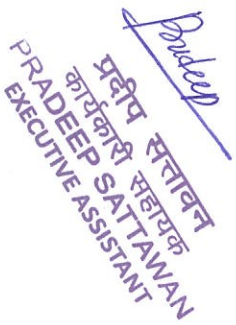 Pradeep
प्रदीप सत्तावन
कार्यकारी सहायक
PRADEEP SATTAWAN
EXECUTIVE ASSISTANT